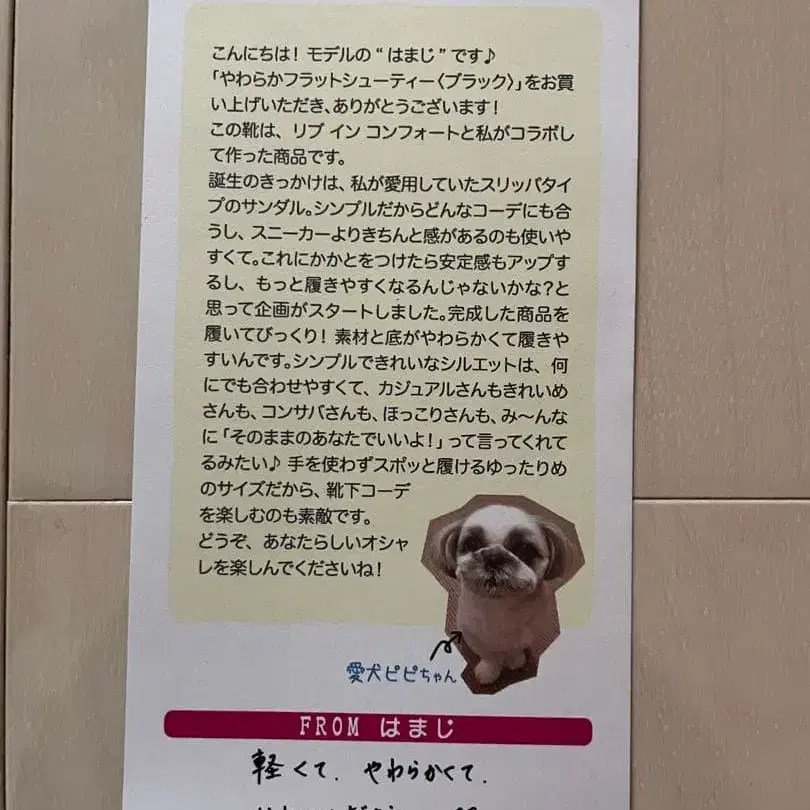 こんにちは! モデルの“はまじ”です♪
「やわらかフラットシューティー〈ブラック〉」をお買
い上げいただき、ありがとうございます!
この靴は、リブ イン コンフォートと私がコラボし
て作った商品です。
誕生のきっかけは、私が愛用していたスリッパタイ
プのサンダル。シンプルだからどんなコーデにも合
うし、スニーカーよりきちんと感があるのも使いや
すくて。これにかかとをつけたら安定感もアップす
るし、もっと履きやすくなるんじゃないかな?と
思って企画がスタートしました。完成した商品を
履いてびっくり! 素材と底がやわらかくて履きや
すいんです。シンプルできれいなシルエットは、何
にでも合わせやすくて、カジュアルさんもきれいめ
さんも、コンサバさんも、ほっこりさんも、み〜んな
に「そのままのあなたでいいよ!」って言ってくれて
るみたい♪ 手を使わずスポッと履けるゆったりめ
のサイズだから、靴下コーデ
を楽しむのも素敵です。
どうぞ、あなたらしいオシャ
レを楽しんでくださいね!
愛犬ピピちゃん
FROM はまじ
軽くて、やわらかくて、